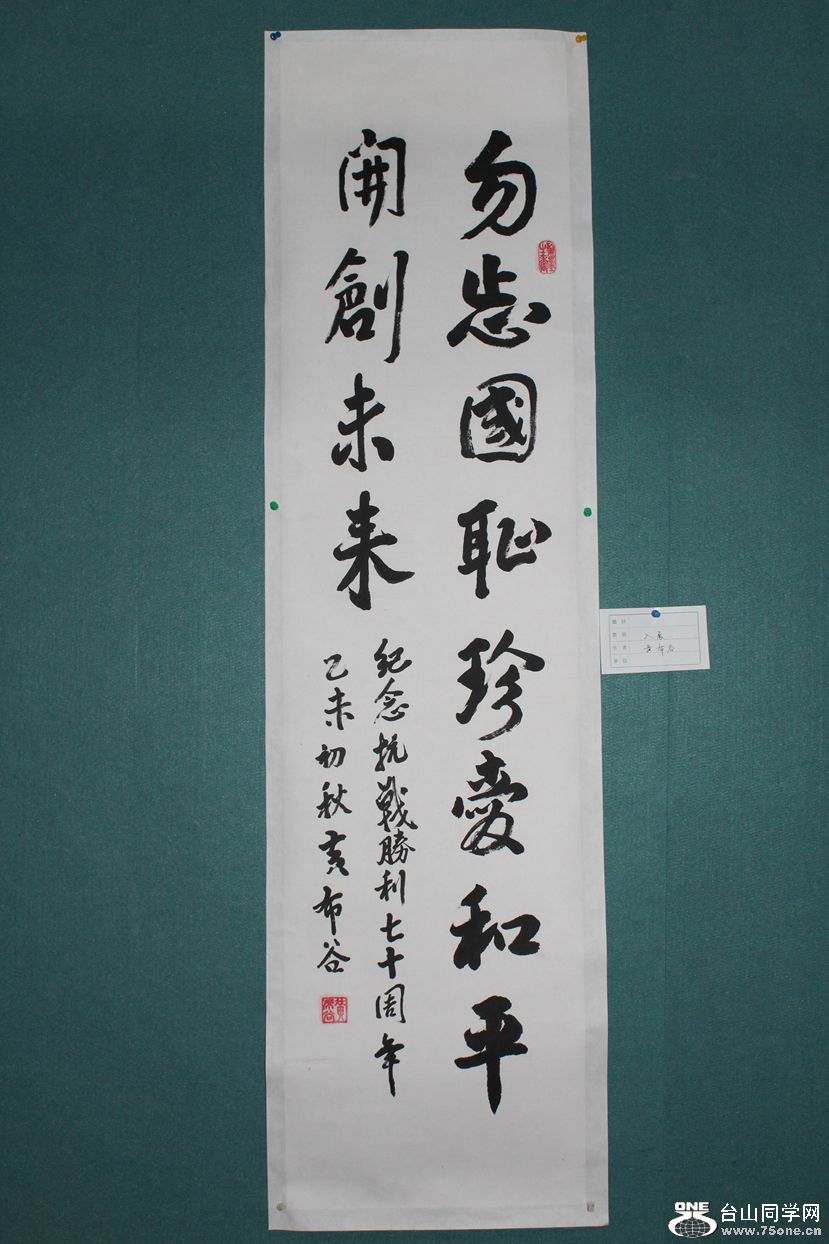 勿忘國恥珍愛和平
開創未来
紀念抗戰勝利七十周年
乙未初秋黃布谷
入展
黃布谷
ONE
台山同学网
www.75one.cn